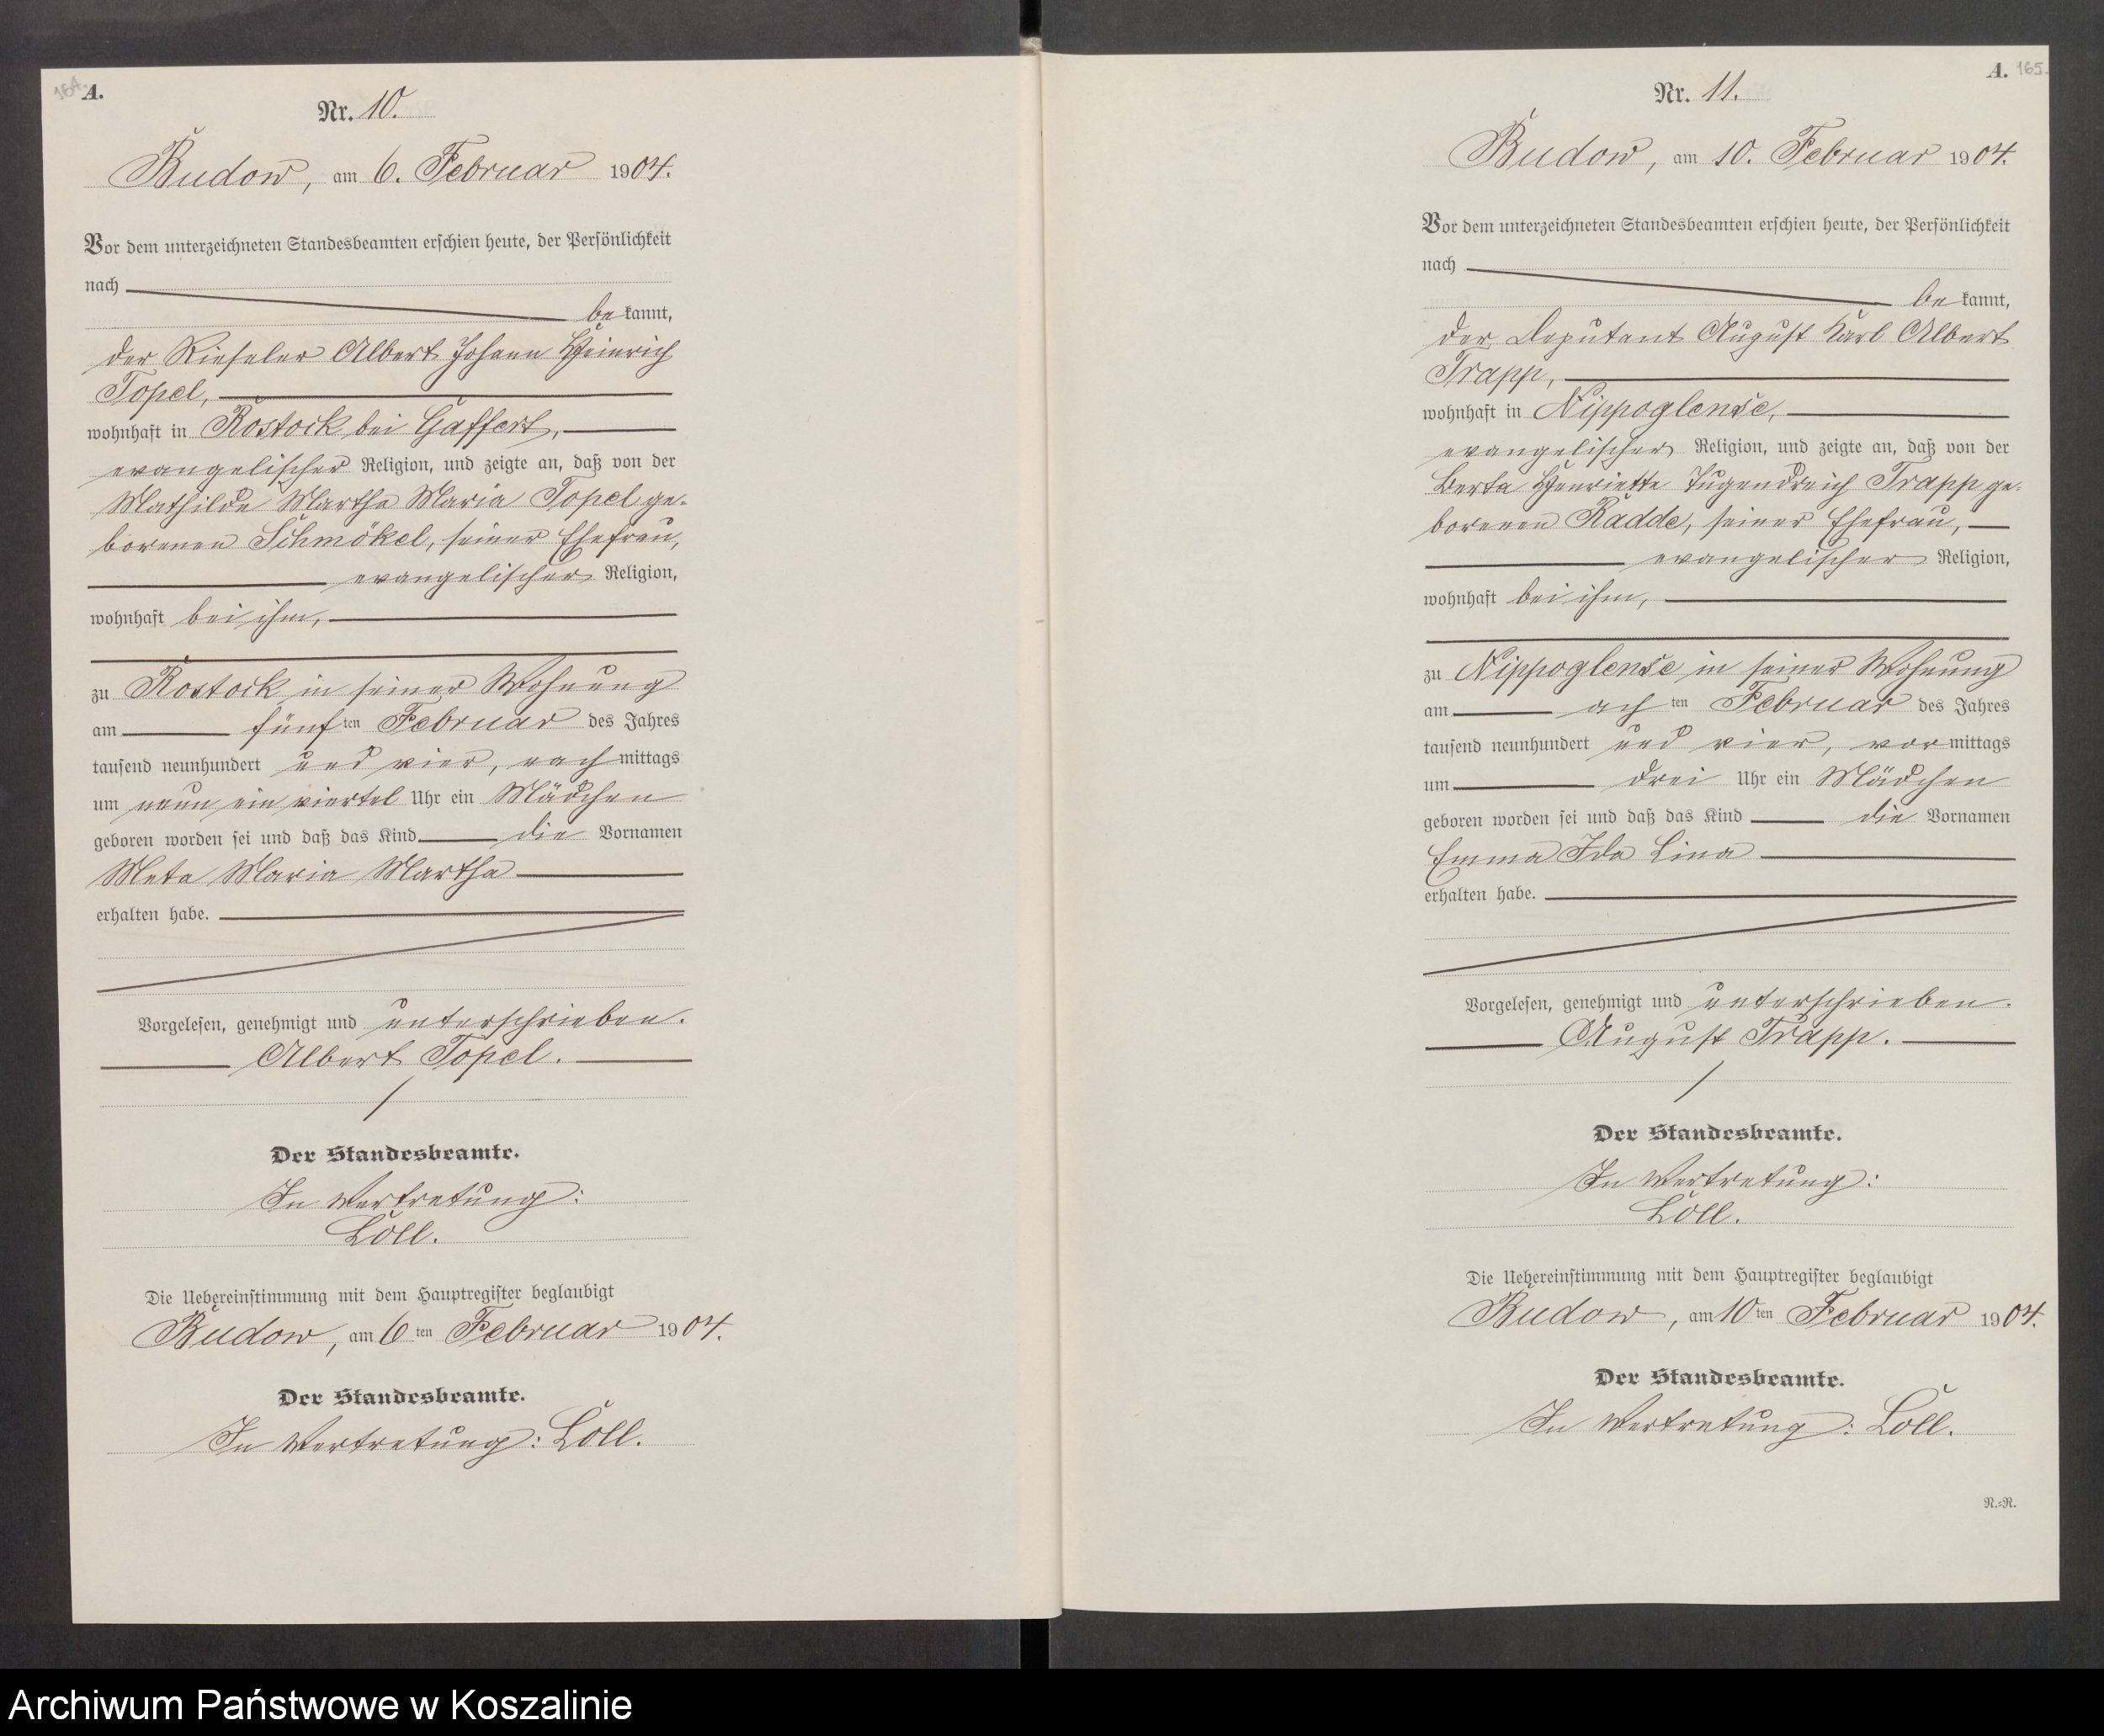 164.
A.
Nr. 10.
Budow, am 6. Februar 1904.
Vor dem unterzeichneten Standesbeamten erschien heute, der Persönlichkeit
nach
be kannt,
der Rieseler Albert Johann Heinrich
Topel,
wohnhaft in Rostock bei Gaffert,
evangelischer Religion, und zeigte an, daß von der
Mathilde Martha Maria Topel ge-
borenen Schmökel, seiner Ehefrau,
evangelischer Religion,
wohnhaft bei ihm,
zu Rostock in seiner Wohnung
am fünf ten Februar des Jahres
tausend neunhundert und vier, nach mittags
um neun ein viertel Uhr ein Mädchen
geboren worden sei und daß das Kind die Vornamen
Meta Maria Martha
erhalten habe.
Vorgelesen, genehmigt und unterschrieben.
Albert Topel.
Der Standesbeamte.
In Vertretung:
Loll.
Die Uebereinstimmung mit dem Hauptregister beglaubigt
Budow, am 6 ten Februar 1904.
Der Standesbeamte.
In Vertretung: Loll.
A. 165.
Nr. 11.
Budow, am 10. Februar 1904.
Vor dem unterzeichneten Standesbeamten erschien heute, der Persönlichkeit
nach
be kannt,
der Deputant August Karl Albert
Trapp,
wohnhaft in Nippoglense,
evangelischer Religion, und zeigte an, daß von der
Berta Henriette Tugendreich Trapp ge-
borenen Radde, seiner Ehefrau,
evangelischer Religion,
wohnhaft bei ihm,
zu Nippoglense in seiner Wohnung
am ach ten Februar des Jahres
tausend neunhundert und vier, vor mittags
um drei Uhr ein Mädchen
geboren worden sei und daß das Kind die Vornamen
Emma Ida Lina
erhalten habe.
Vorgelesen, genehmigt und unterschrieben.
August Trapp.
Der Standesbeamte.
In Vertretung:
Loll.
Die Uebereinstimmung mit dem Hauptregister beglaubigt
Budow, am 10 ten Februar 1904.
Der Standesbeamte.
In Vertretung: Loll.
R.-R.
Archiwum Państwowe w Koszalinie